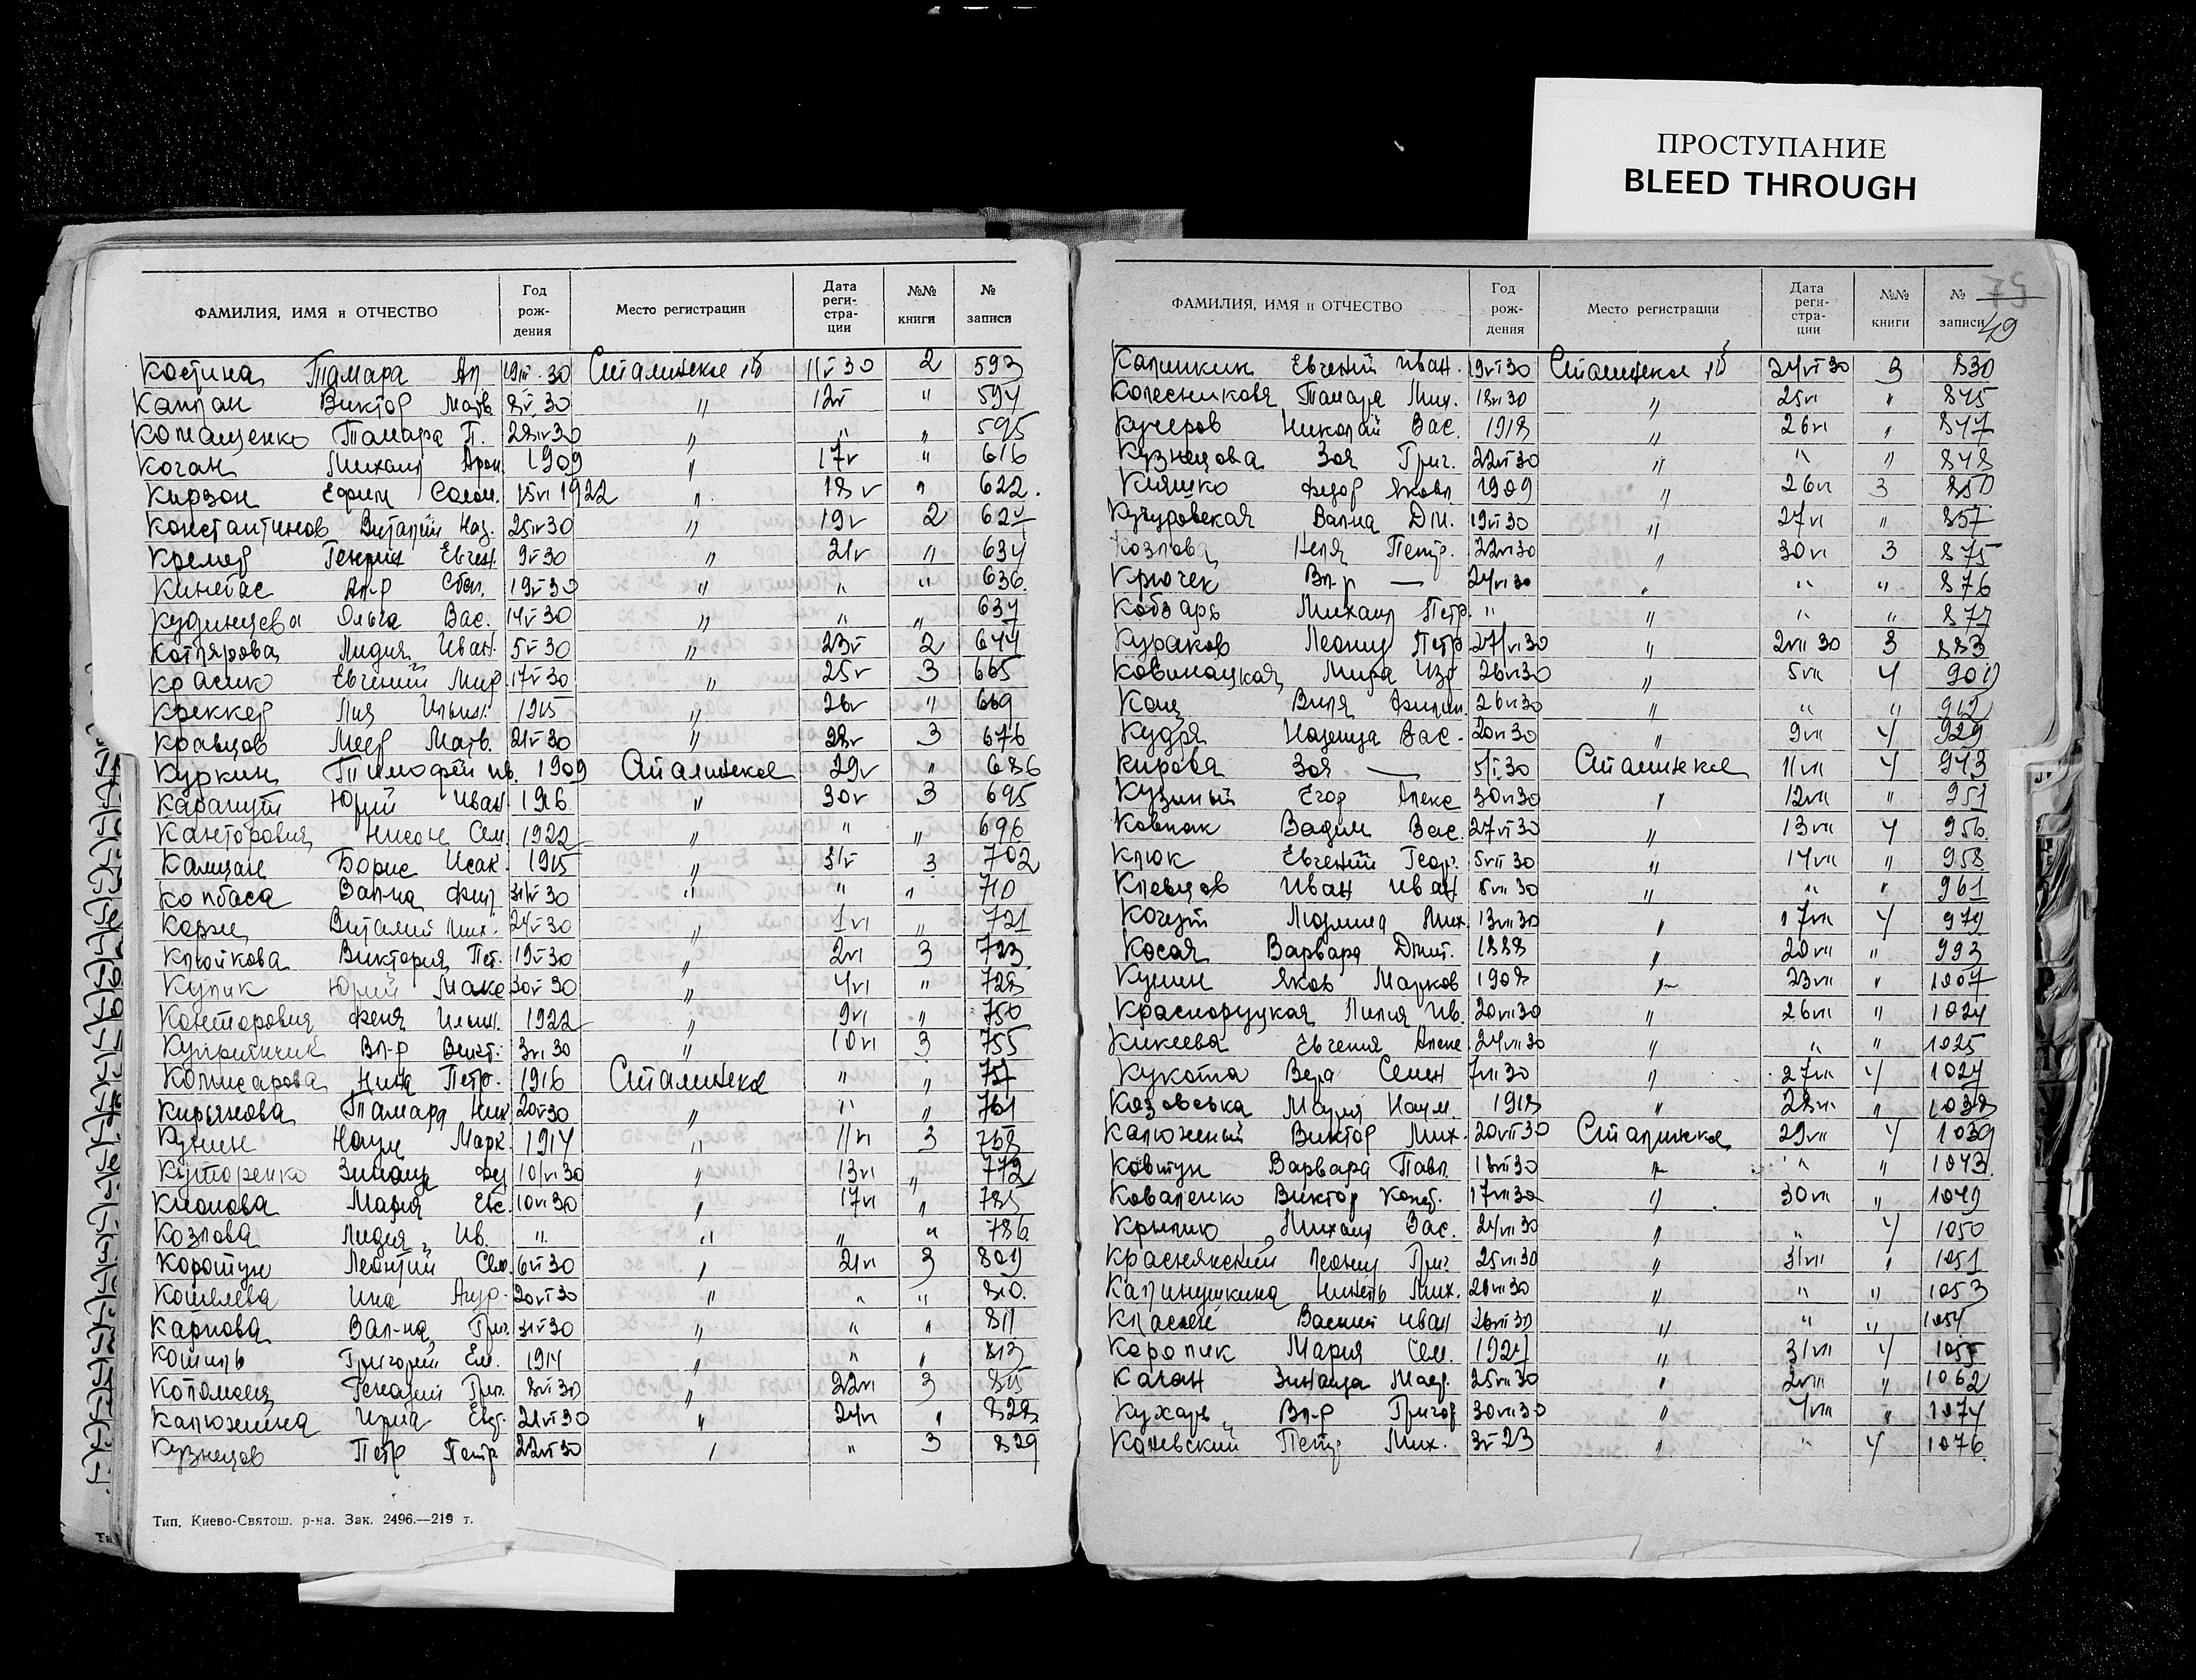 ПРОСТУПАНИЕ
BLEED THROUGH
ФАМИЛИЯ, ИМЯ и ОТЧЕСТВО Год рож- дения Место регистрации Дата реги- стра- ции №№ книги № записи
Костина Тамара Ал. 30 Сталинское 11V 30 2 593
Каплан Виктор Матв. 8V 30 〃 12V 〃 594
Тамара П. 28IV30 〃 〃 〃 595
Коган Михаил Арон. 1909 〃 17V 〃 616
Кирзон Ефим Солом. 1922 〃 18V 〃 622.
Константинов Виталий 25IV30 〃 19V 2
Кремер Евген. 9V 30 〃 21V 〃 634
Ал-р 19V30 〃 〃 〃 636.
Кудинцева Ольга Вас. 14V 30 〃 〃 〃 637
Котлярова Лидия Иван. 5V 30 〃 23V 2 644
Красико Евгений Мир. 17V 30 〃 25V 3 665
Креккер Лия 1915 〃 26V 〃 669
Кравцов Меер Матв. 21V 30 〃 28V 3 676
Куркин Тимофей Ив. 1909 Сталинское 29V 〃 686
Карапут Юрий Иван 〃 30V 3 695
Канторович Нисон Сем. 1922 〃 〃 〃 696
Борис Исак. 1915 〃 31V 3 702
Колбаса Вал-на Фил. 30 〃 〃 〃 710
Корж Виталий Мих. 24V 30 〃 1VI 〃 721
Клюйкова Виктория Пет. 19V30 〃 2VI 3 723
Кулик Юрий Макс 30V 30 〃 4VI 〃 728
Канторович Феня 1922 〃 9VI 〃 750
Вл-р Викт. 3VI 30 〃 10VI 3 755
Комисарова Нина Петр. 1916 Сталинское 〃 〃 757
Кирьянова Тамара Ник. 20V30 〃 〃 〃 761
Кунин Наум Марк. 1914 〃 11VI 3 768
Зинаида 10/VI 30 〃 13VI 〃 772
Мария Евс. 10VI 30 〃 17VI 〃 785
Козлова Лидия Ив. 〃 〃 〃 〃 786
Коротун Леонтий Сем. 6VI 30 〃 21VI 3 809
Кошелева Ина Андр. 20VI 30 〃 〃 〃 810.
Карпова Вал-на Григ. 30 〃 〃 〃 811
Григорий Ем. 1914 〃 〃 〃 813
Коломеец Генадий Григ. 8VI 30 〃 22VI 3 815
Калюжина Ирина 21VI 30 〃 24VI 〃 828
Кузнецов Петр Петр. 22VI 30 〃 〃 3 829
Тип. Киево-Святош. р-на. Зак. 2496.—219 т.
75
49
ФАМИЛИЯ, ИМЯ и ОТЧЕСТВО Год рож- дения Место регистрации Дата реги- стра- ции №№ книги № записи
Калинкин Евгений Иван. 19VI 30 Сталинское 24VI 30 3 830
Колесникова Тамара Мих. 18VI 30 〃 25VI 〃 845
Кучеров Николай Вас. 1918 〃 26VI 〃 847
Кузнецова Зоя Григ. 22VI 30 〃 〃 〃 848
Кияшко Федор Яковл 1909 〃 26VI 3 850
Кучуровская Вал-на Дм. 19VI 30 〃 27VI 〃 857
Козлова Неля Петр. 22VI30 〃 30VI 3 875
Крючек Вл-р — 24VI 30 〃 〃 〃 876
Кобзарь Михаил Петр. 〃 〃 〃 〃 877
Кураков Леонид Петр 27/VI 30 〃 2VII 30 3 883
Мира Изр 26VI30 〃 5VII 4 909
Кац Виля Филип. 26VI30 〃 〃 〃 912
Кудря Надежда Вас. 20VI 30 〃 9VII 4 929
Кирова Зоя — 30 Сталинское 11VII 4 943
Егор Алекс 30VI30 〃 12VII 〃 951
Ковпак Вадим Вас. 27VI 30 〃 13VII 4 956
Клюк Евгений Геор. 5VII 30 〃 14VII 〃 958
Клевцов Иван Иван 8VII 30 〃 〃 〃 961
Кочут Людмила Мих. 13VII30 〃 17VII 4 979
Косая Варвара Дмит. 1888 〃 20VII 〃 993
Кунин Яков Марков 1908 〃 23VII 〃 1007
Краснорудская Лилия Ив. 20VII 30 〃 26VII 〃 1024
Кикеева Евгения Алекс 24VII 30 〃 〃 〃 1025
Кукота Вера Семен 7VII 30 〃 27VII 4 1027
Козовська Мария Наум. 1918 〃 28VII 〃 1038
Калюжный Виктор Мих. 20VII 30 Сталинское 29VII 4 1039
Ковтун Варвара Павл. 18VII30 〃 〃 〃 1043.
Коваленко Виктор Конст. 17VII30 〃 30VII 〃 1049
Михаил Вас. 24VII 30 〃 〃 4 1050
Краснянский Леонид Григ. 25VII 30 〃 31VII 〃 1051
Калинушкина Нинель Мих. 20VII 30 〃 〃 〃 1053
Василий Иван 26VII 30 〃 〃 〃 1054
Королик Мария Сем. 〃 31VII 4 1055
Каган Зинаида 25VII 30 〃 2VIII 〃 1062
Кухарь Вл-р Григор 30VII 30 〃 4VIII 〃 1074
Каневский Петр Мих. 3V 23 〃 〃 4 1076